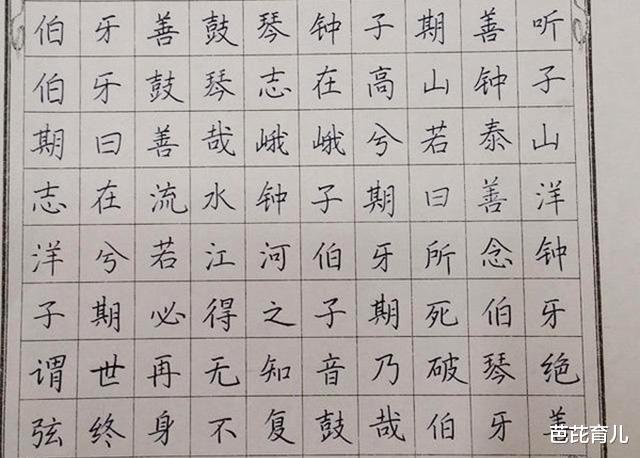 伯牙善鼓琴钟子期善听
伯牙鼓琴志在高山钟子
期曰善哉峨峨兮若泰山
志在流水钟子期曰善洋
洋兮若江河伯牙所念钟
子期必得之子期死伯牙
谓世再无知音乃破琴绝
弦终身不复鼓哉伯牙善
芭花育儿